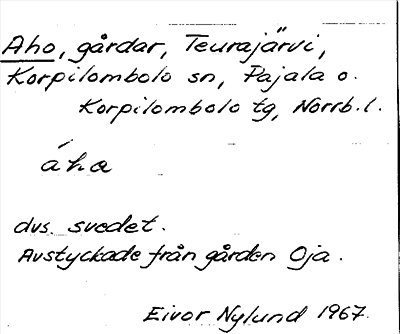 Aho, gårdar, Teurajärvi,
Korpilombolo sn, Pajala o.
Korpilombolo tg, Norrb.l.
àha
dvs. svedet.
Avstyckade från gården Oja.
Eivor Nylund 1967.